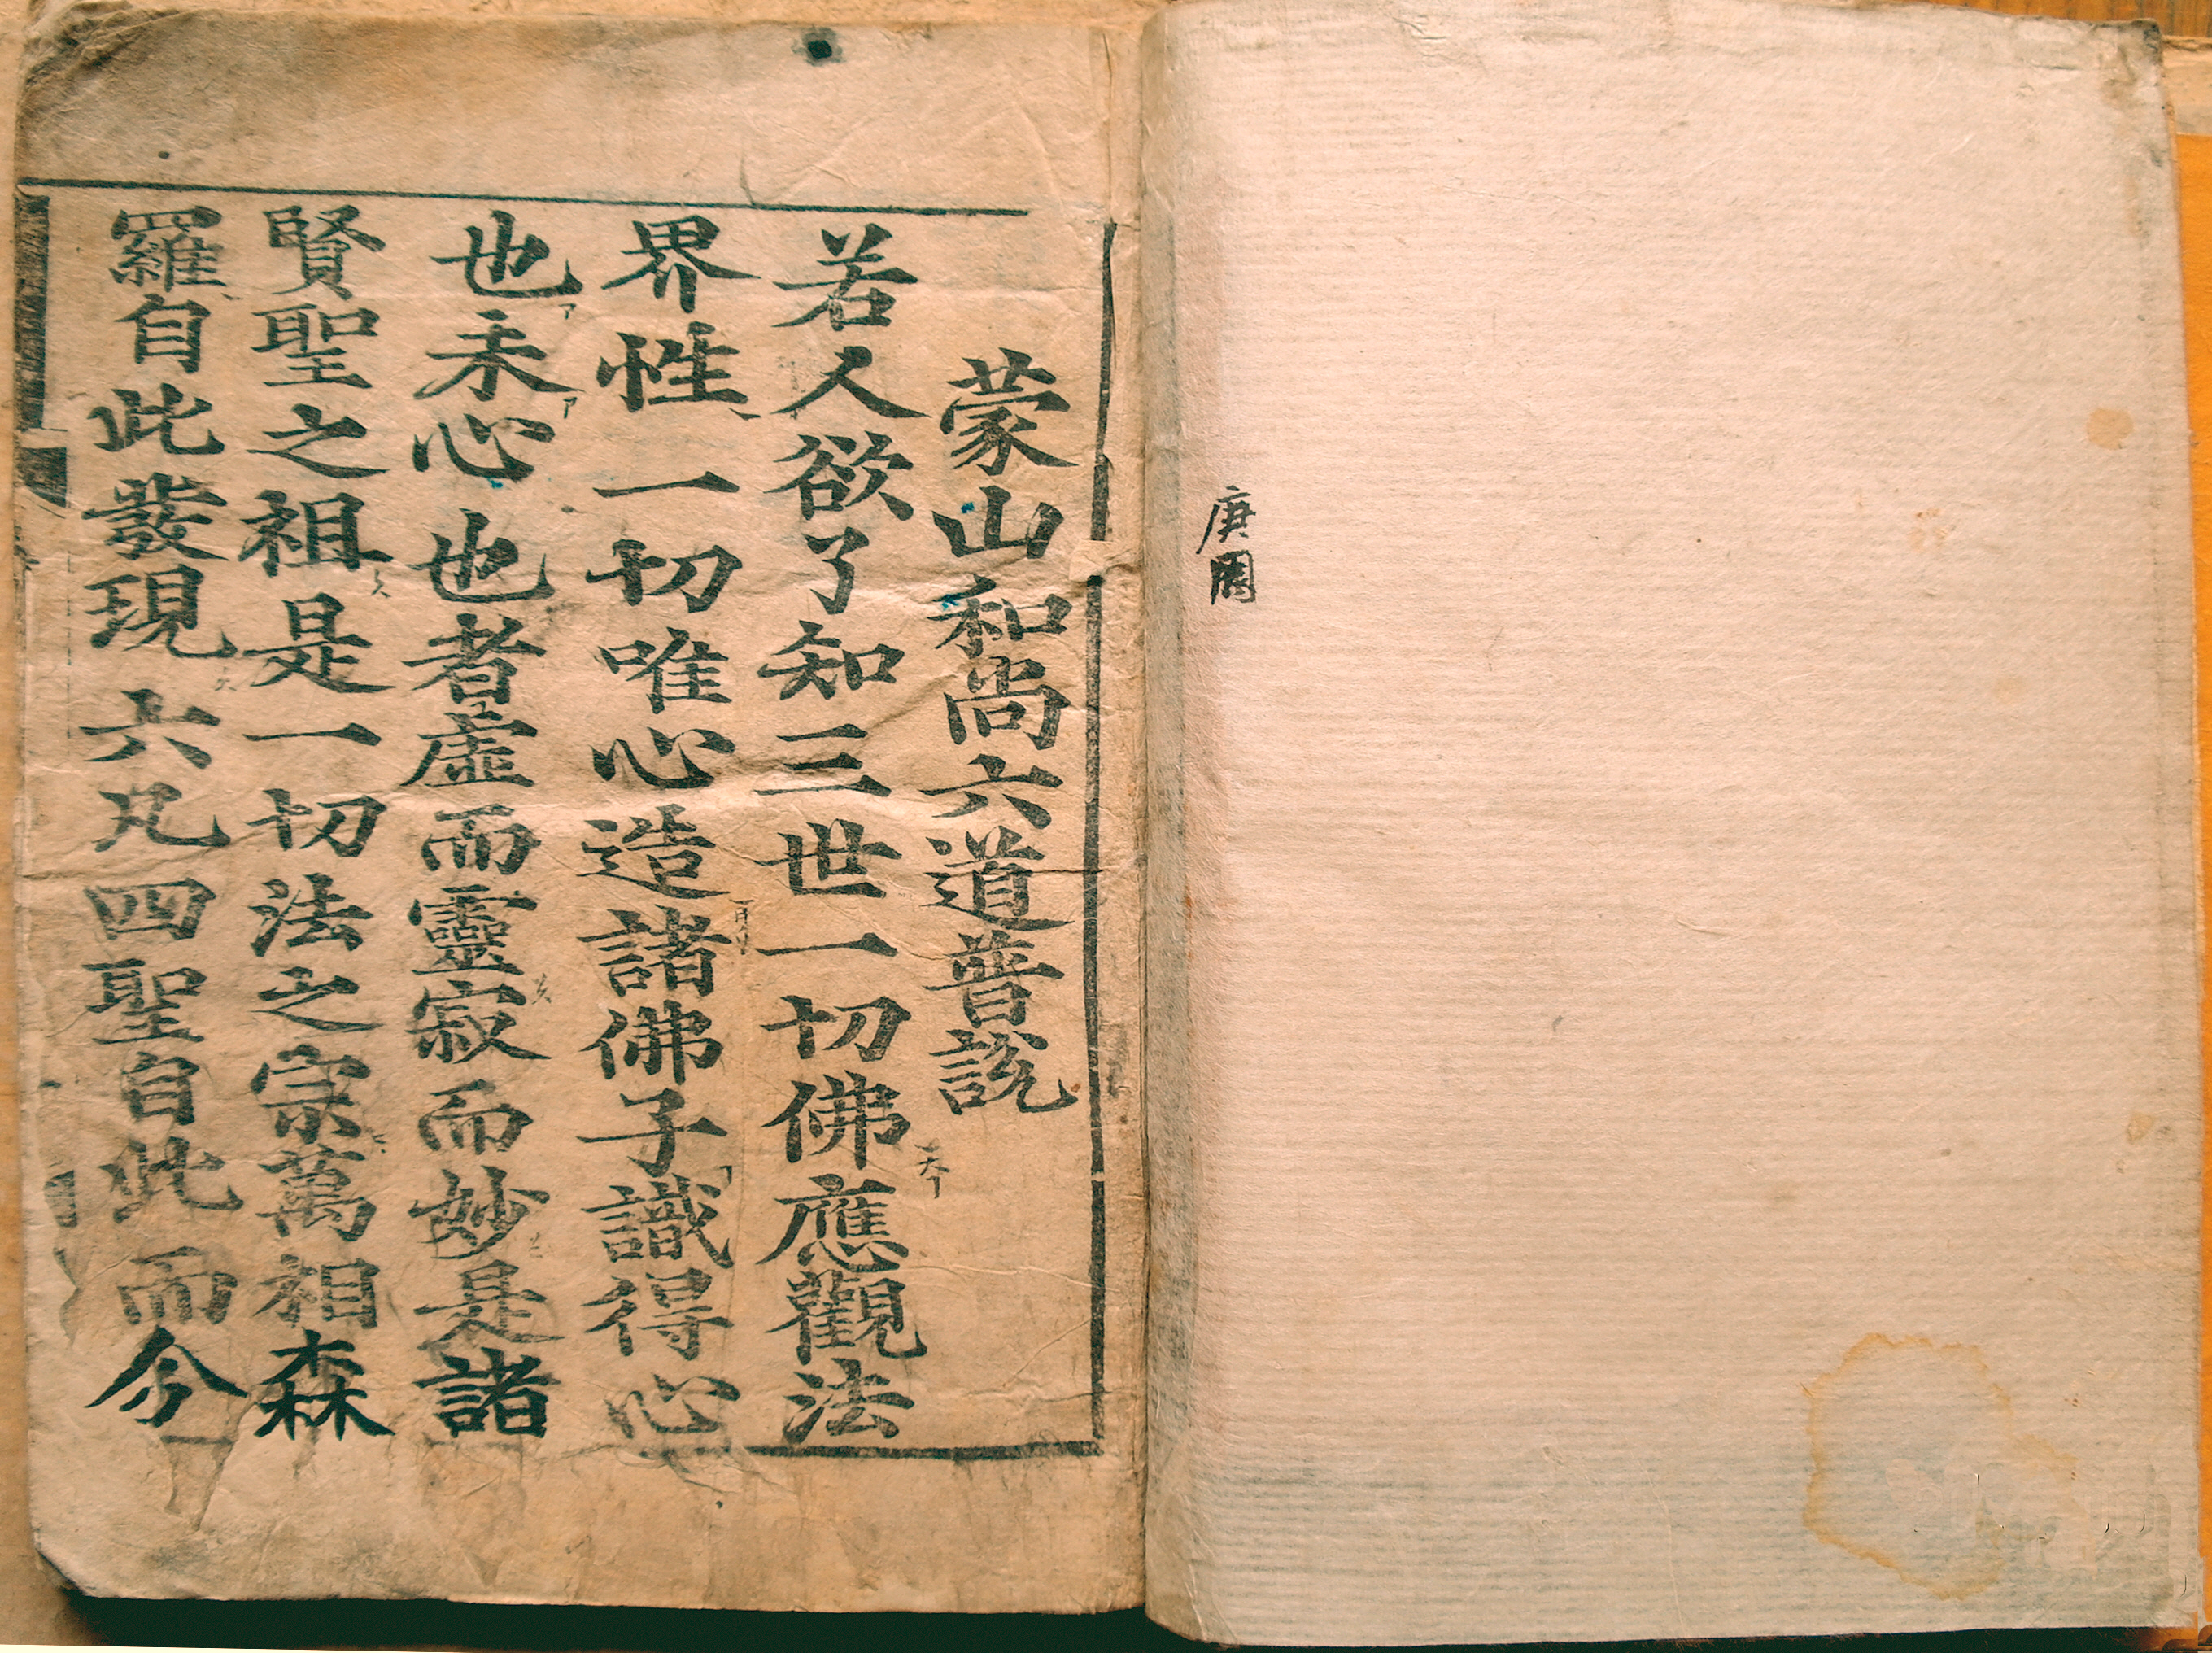 庚
蒙山和尚六道普說
若人欲了知三世一切佛應觀法
界性一切唯心造諸佛子識得心
也未心也者虛而靈寂而妙是諸
賢聖之祖是一切法之宗萬相森
羅自此發現六凡四聖自此而今